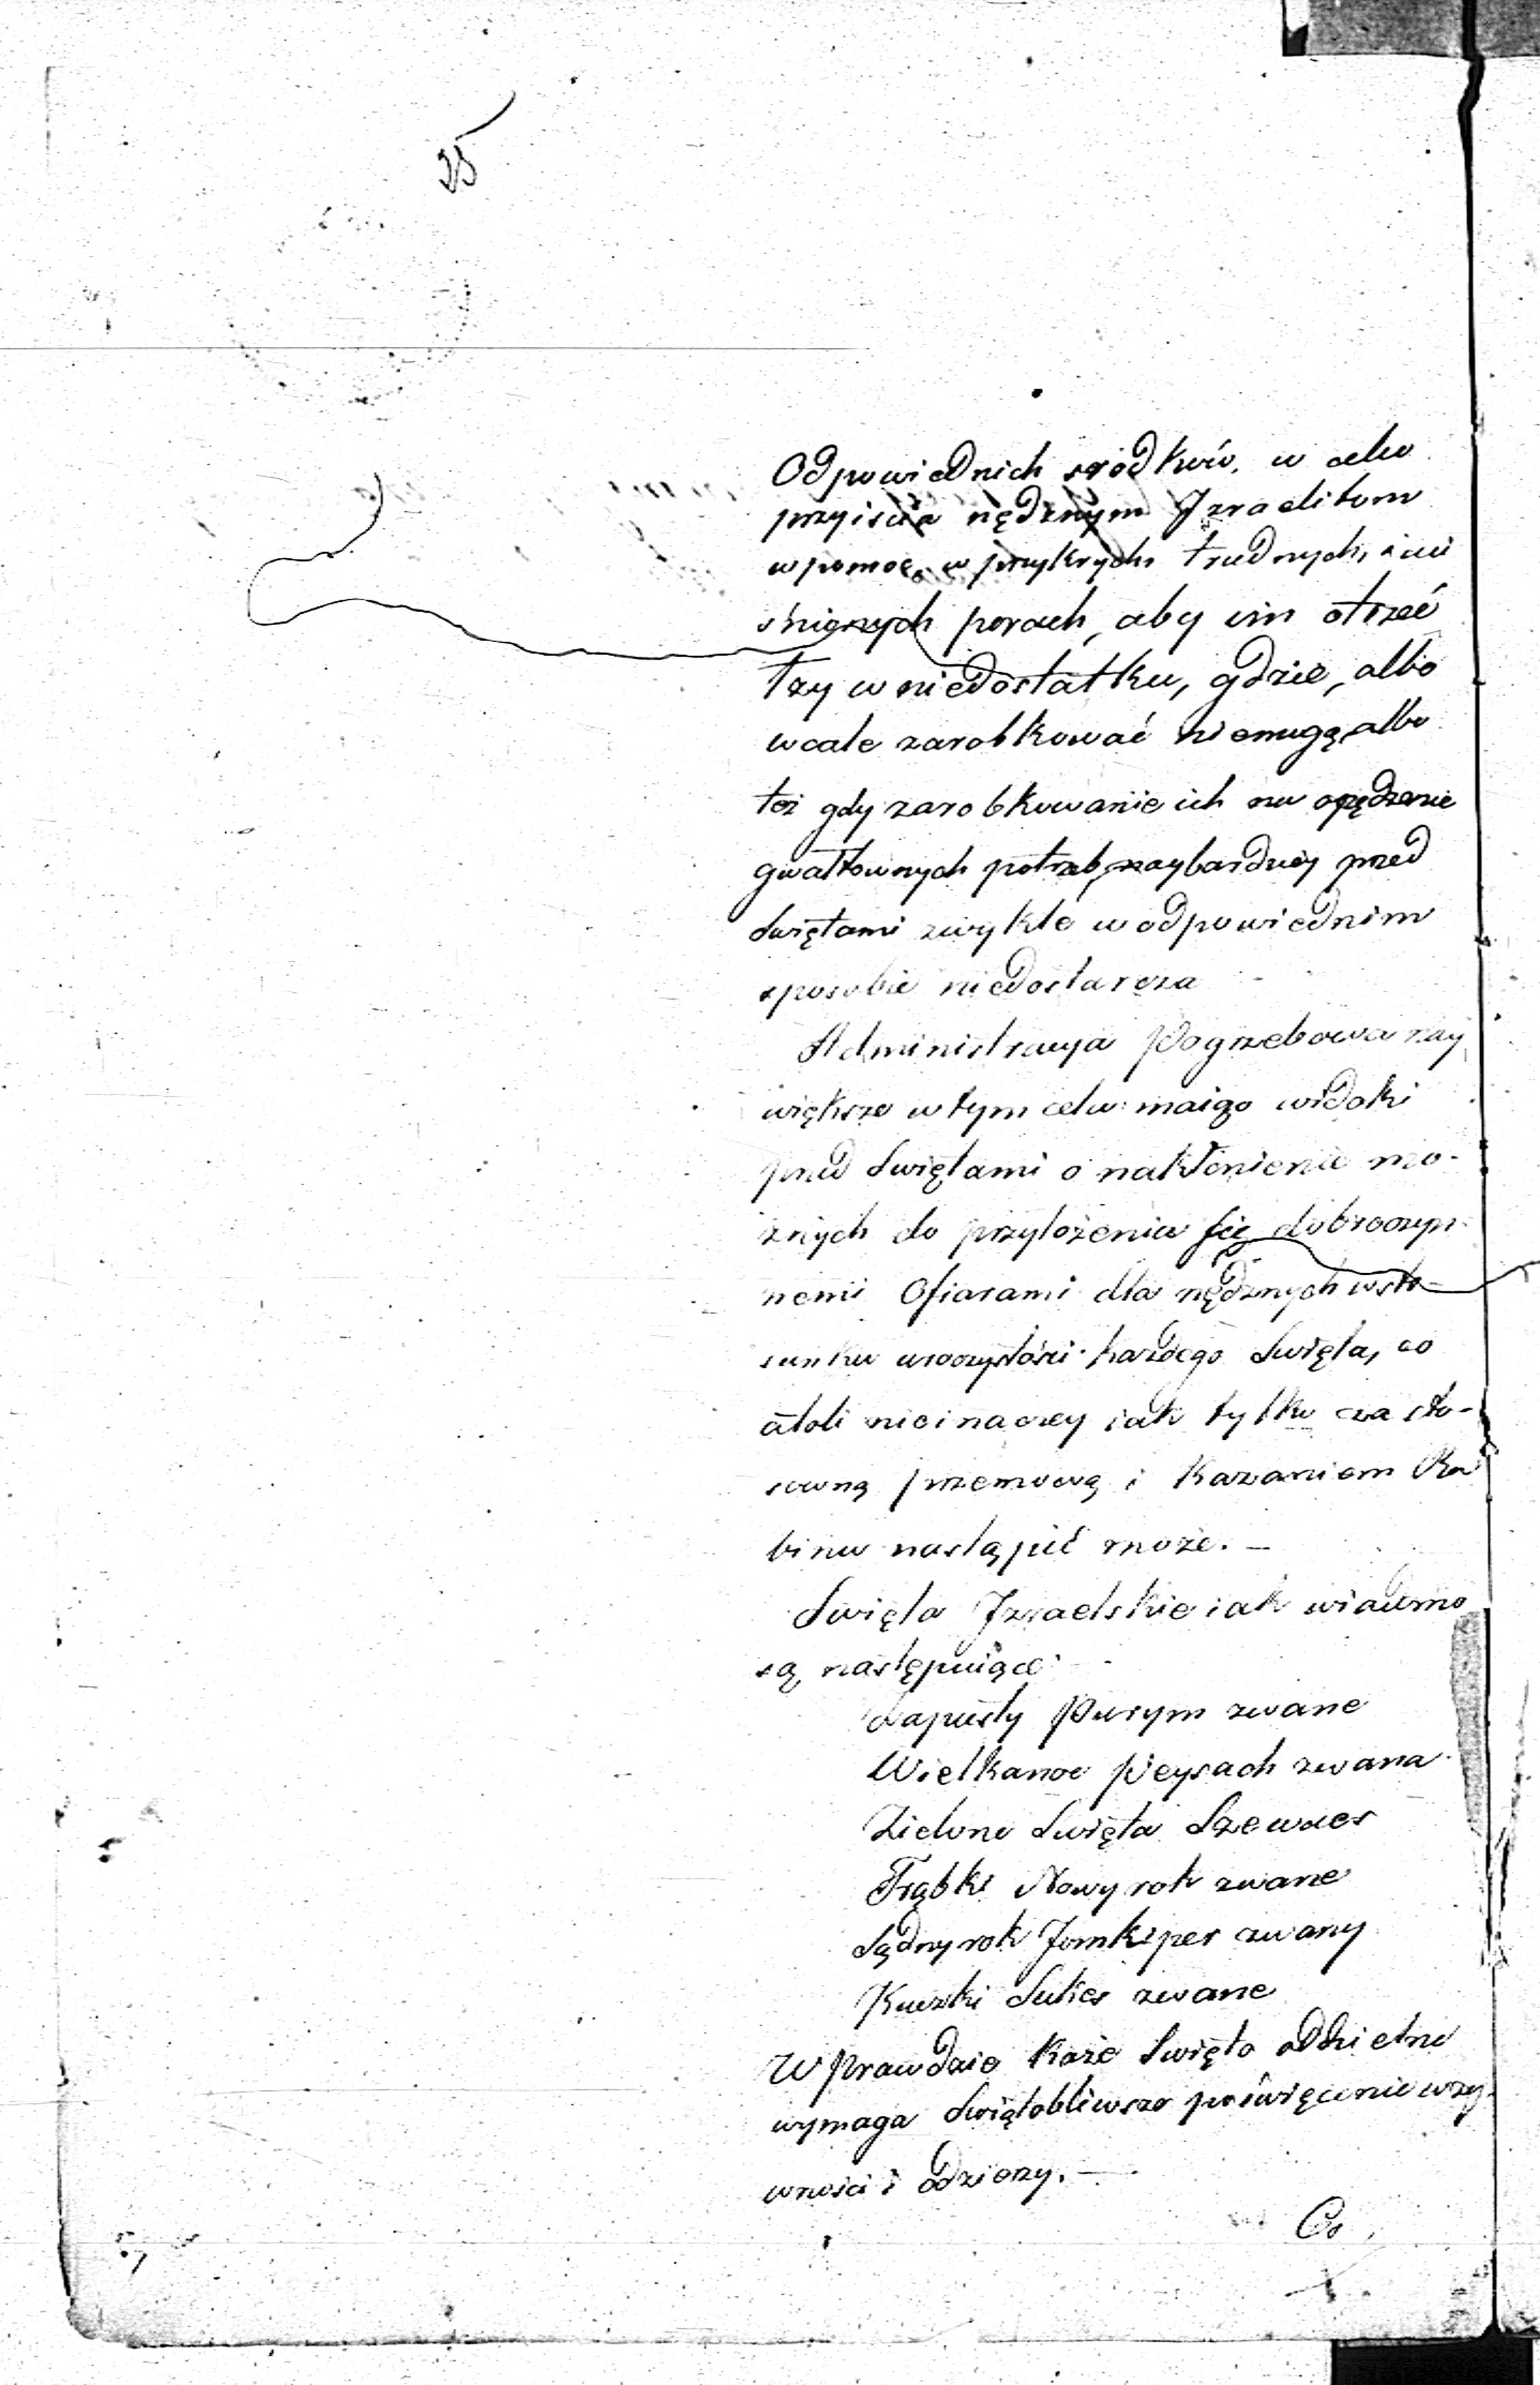 25
Odpowiednich srodków, w celu
przyiścia nędznym Izraelitom
w pomoc, w przykrych trudnych, i uci
śnionych porach, aby im otrzeć
łzy w niedostatku, gdzie, albo
wcale zarobkować niemogą, albo
też gdy zarobkowanie ich na opędzenie
gwałtownych potrzeb, naybardziey przed
Swiętami zwykle w odpowiednim
sposobie niedostarcza
Administracya Pogrzebowa nay
większe w tym celu maiąc widoki
przed Swiętami o nakłonienie mo-
żnych do przyłożenia się dobroczyn
nemi Ofiarami dla nędznych w sto-
sunku uroczystości każdego Swięta, co
atoli nieinaczey iak tylko za sto-
sowną przemową i Kazaniem Ra
bina nastąpić może. —
Swięta Izraelskie iak wiadomo
są następuiące
Zapusty Purym zwane
Wielkanoc Peysach zwana
Zielone Swięta Szewues
Trąbki Nowy rok zwane
Sądny rok Jomkiper zwany
Kuczki Sukes zwane
Wprawdzie Każe Swięto oddzielne
wymaga Swiątobliwsze poświęcenie w ży-
wności i odzieży. —
Co